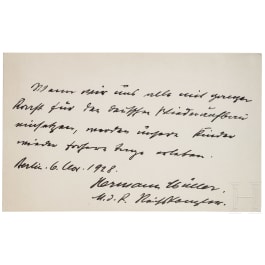 Wenn wir uns alle mit ganzer
Kraft für den deutschen Wiederaufbau
einsetzen, werden unsere Kinder
wieder frohere Tage erleben.
Berlin. 6. Nov. 1928.
Hermann Müller.
M.d.R. Reichskanzler.